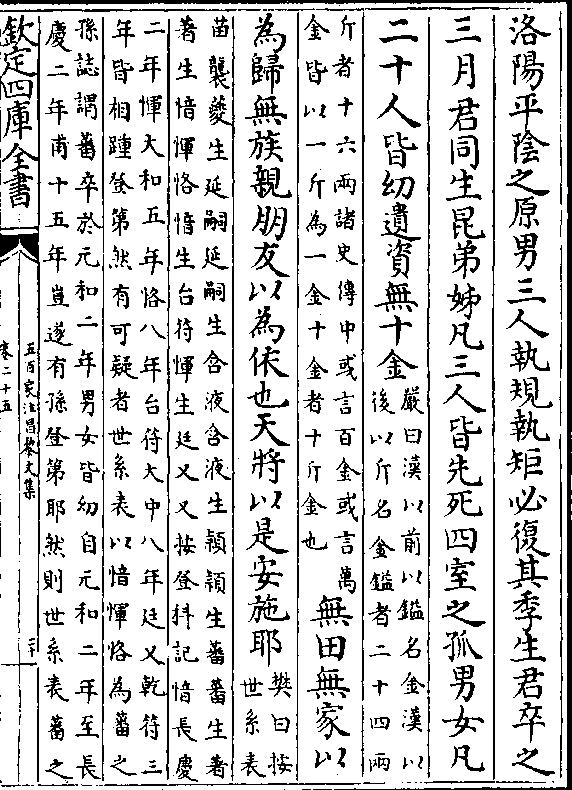 洛陽平陰之原男三人執規執矩必復其季生君卒之
三月君同生昆弟姊凡三人皆先死四室之孤男女凡
二十人皆幼遺資無十金
嚴曰漢以前以鎰名金漢以
後以斤名金鎰者二十四兩
斤者十六兩諸史傳中或言百金或言萬
金皆以一斤為一金十金者十斤金也
無田無家以
為歸無族親朋友以為依也天將以是安施耶
樊曰按
世系表
苗襲夔生延嗣延嗣生含液含液生頴頴生蕃蕃生著
著生愔惲恪愔生台符惲生廷乂又按登科記愔長慶
二年惲大和五年恪八年台符大中八年廷乂乾符三
年皆相踵登第然有可疑者世系表以愔惲恪為蕃之
孫誌謂蕃卒於元和二年男女皆幼自元和二年至長
慶二年甫十五年豈遂有孫登第耶然則世系表蕃之
欽定四庫全書
五百家注昌黎文集
卷二十五
二十